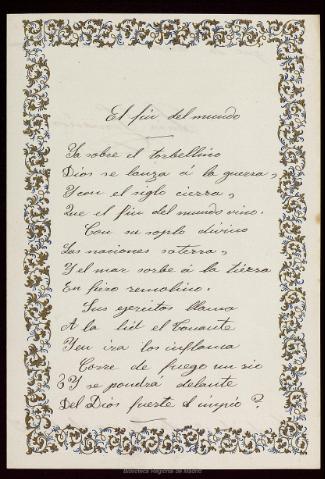 El fin del mundo
Ya sobre el torbellino
Dios se lanza á la guerra,
Y con el siglo cierra,
Que el fin del mundo vino.
Con su soplo divino
Las naciones soterra,
Y el mar sorbe á la tierra
En fiero remolino.
Sus ejercitos llama
A la lid el Tonante
Y en ira los inflama
Corre de fuego un rio
¿Y se pondra delante
Del Dios fuerte el impio?
Biblioteca Regional de Madrid